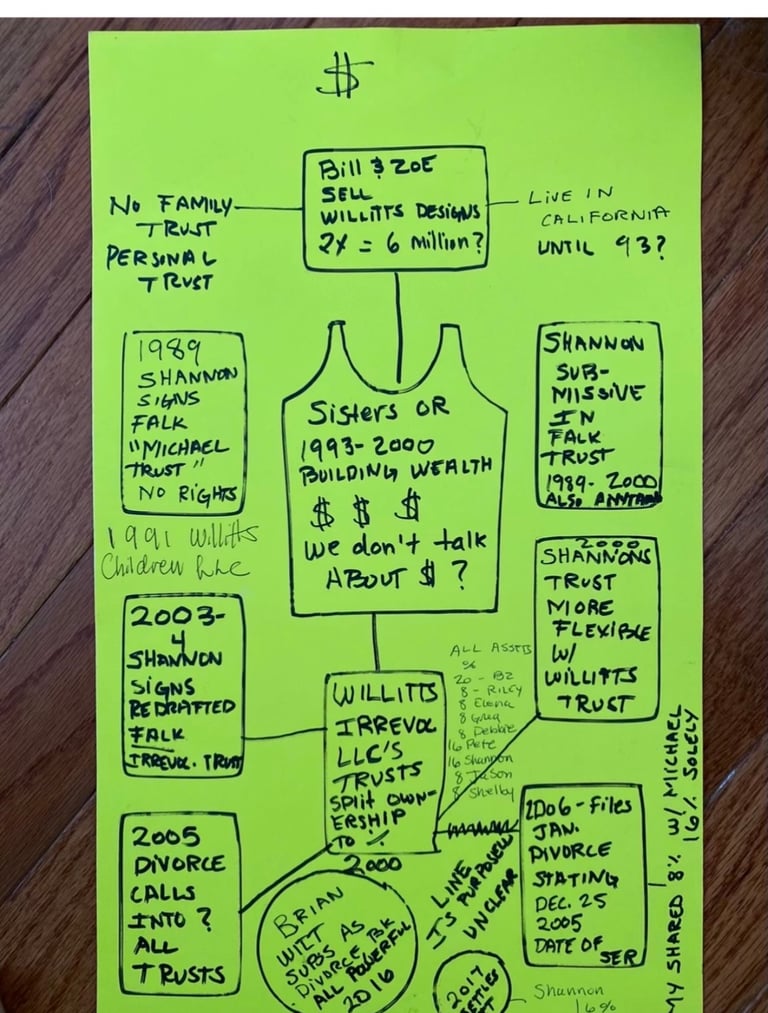 $
Bill & ZOE
SELL
WILLITTS DESIGNS
2X = 6 Million?
NO FAMILY
TRUST
PERSONAL
TRUST
LIVE IN
CALIFORNIA
UNTIL 93?
1989
SHANNON
SIGNS
FALK
"MICHAEL
TRUST"
NO RIGHTS
Sisters OR
1993-2000
BUILDING WEALTH
$ $ $
We don't talk
ABOUT $ ?
SHANNON
SUB-
MISSIVE
IN
FALK
TRUST
1989-2000
ALSO
1991 Willitts
Children
2003-
4
SHANNON
SIGNS
REDRAFTED
FALK
IRREVOC. TRUST
2000
SHANNONS
TRUST
MORE
FLEXIBLE
W/
WILLITTS
TRUST
ALL ASSETS
%
20 - BZ
8 - RILEY
8
8 Greg
8 Debbie
16 Pete
16 Shannon
8 Jason
8 Shelby
WILLITTS
IRREVOC
LLC'S
TRUSTS
SPLIT OWN-
ERSHIP
TO %
2000
2005
DIVORCE
CALLS
INTO ?
ALL
TRUSTS
2006-Files
JAN.
DIVORCE
STATING
DEC. 25
2005
DATE OF
SER
MY SHARED 8% W/ MICHAEL
16% SOLELY
LINE
IS PURPOSELY
UNCLEAR
BRIAN
WILT
SUBS AS
DIVORCE BK
ALL POWERFUL
2016
2017
Shannon
16%